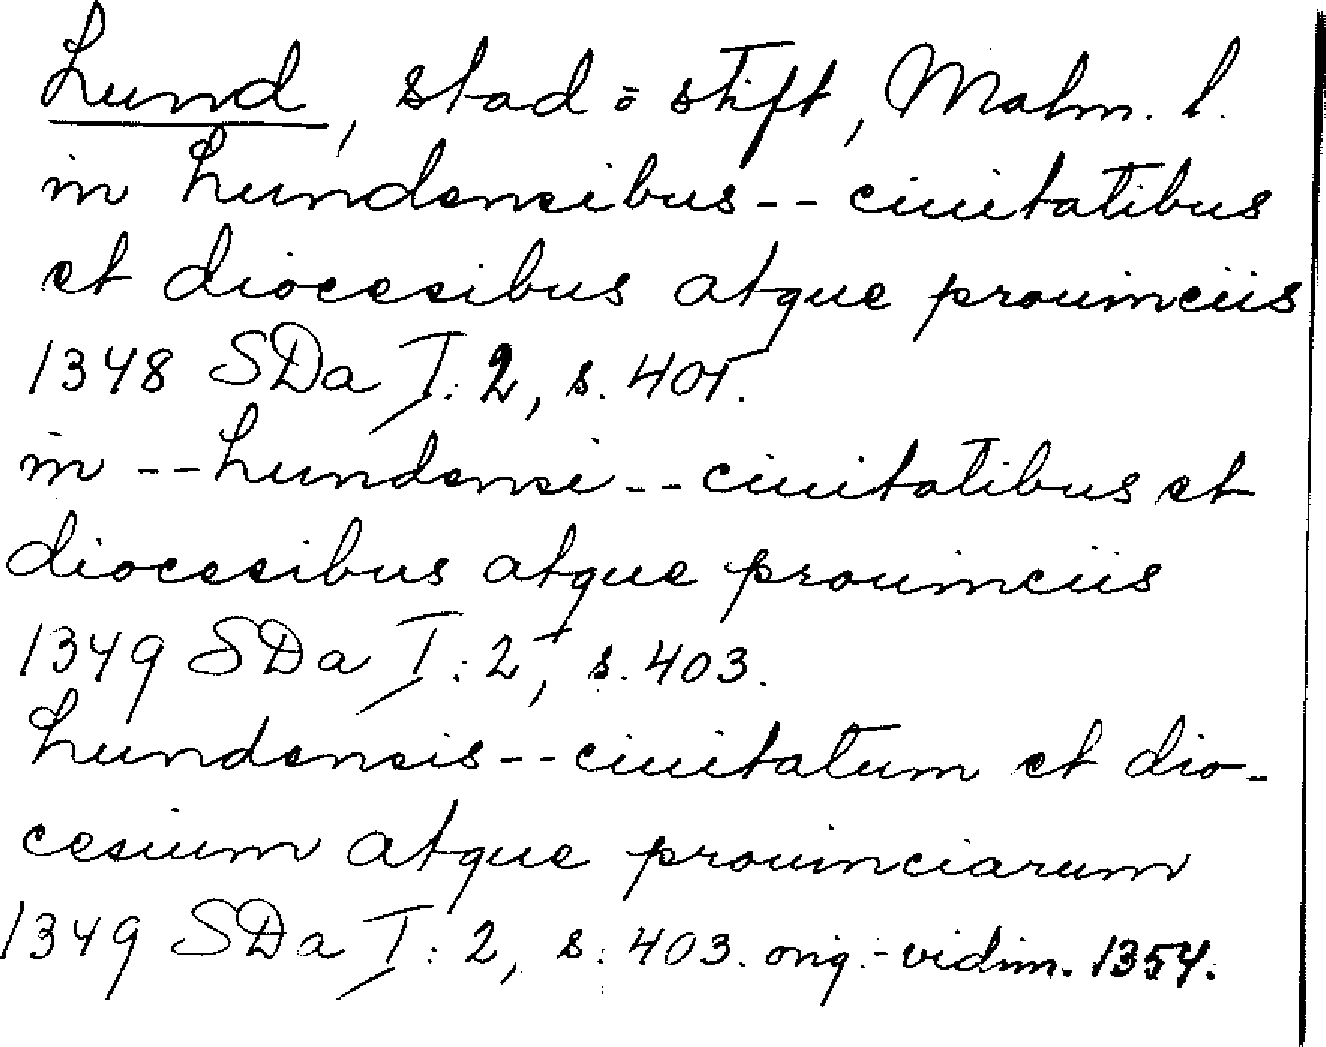 Lund, stad o stift, Malm. l.
in Lundensibus -- ciuitatibus
et diocesibus atque prouinciis
1348 SDa I: 2, s. 401.
in -- Lundensi -- ciuitatibus et
diocesibus atque prouinciis
1349 SDa I: 2, s. 403.
Lundensis -- ciuitatum et dio-
cesium atque prouinciarum
1349 SDa I: 2, s. 403. orig.-vidim. 1354.